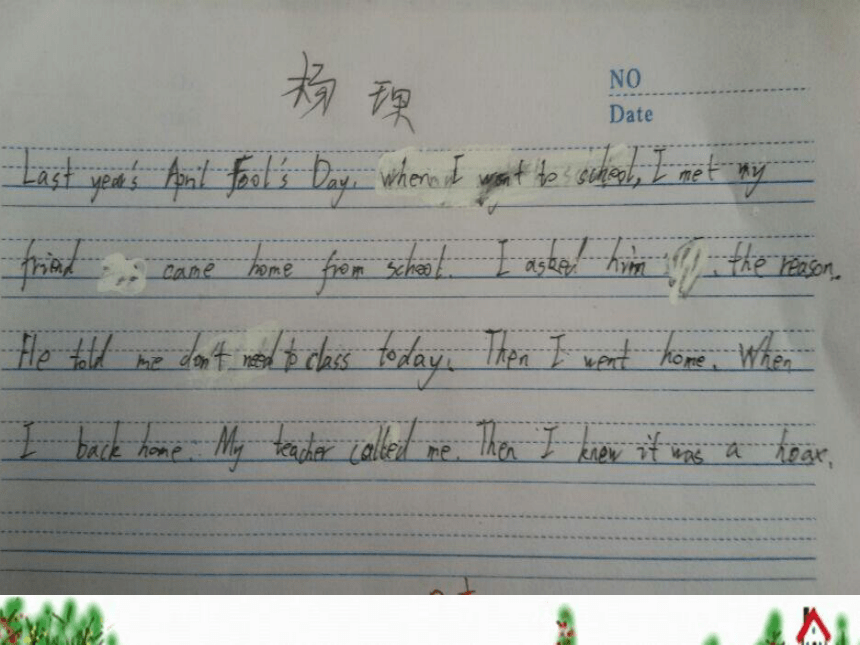 杨理
NO
Date
Last year's April Fool's Day. when I went to school, I met my
friend came home from school. I asked him . the reason.
He told me don't need to class today. Then I went home. When
I back home. My teacher called me. Then I knew it was a hoax.